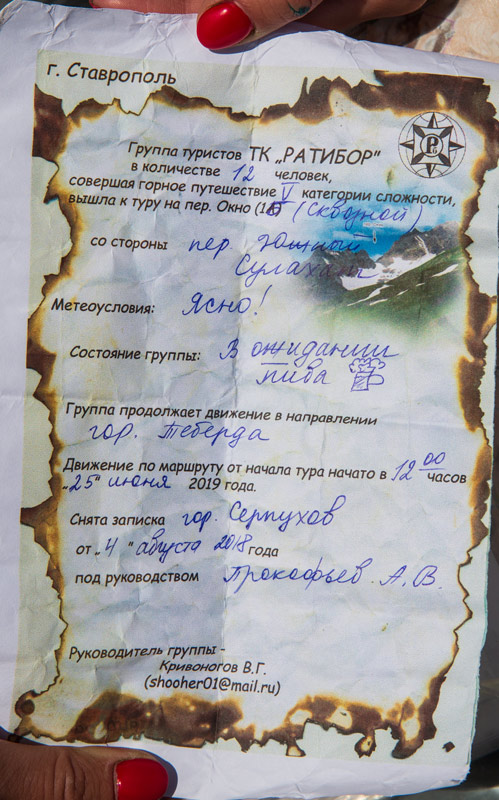 г. Ставрополь
Группа туристов ТК „РАТИБОР"
в количестве 12 человек,
совершая горное путешествие V категории сложности,
вышла к туру на пер. Окно (1Б (Сквозной)
со стороны пер Южный
Сулахат
Метеоусловия: Ясно!
Состояние группы: В ожидании
пива
Группа продолжает движение в направлении
гор. Теберда
Движение по маршруту от начала тура начато в 12 00 часов
„25" июня 2019 года.
Снята записка гор. Серпухов
от „4" августа 2018 года
под руководством Прокофьев А. В.
Руководитель группы -
Кривоногов В.Г.
(shooher01@mail.ru)